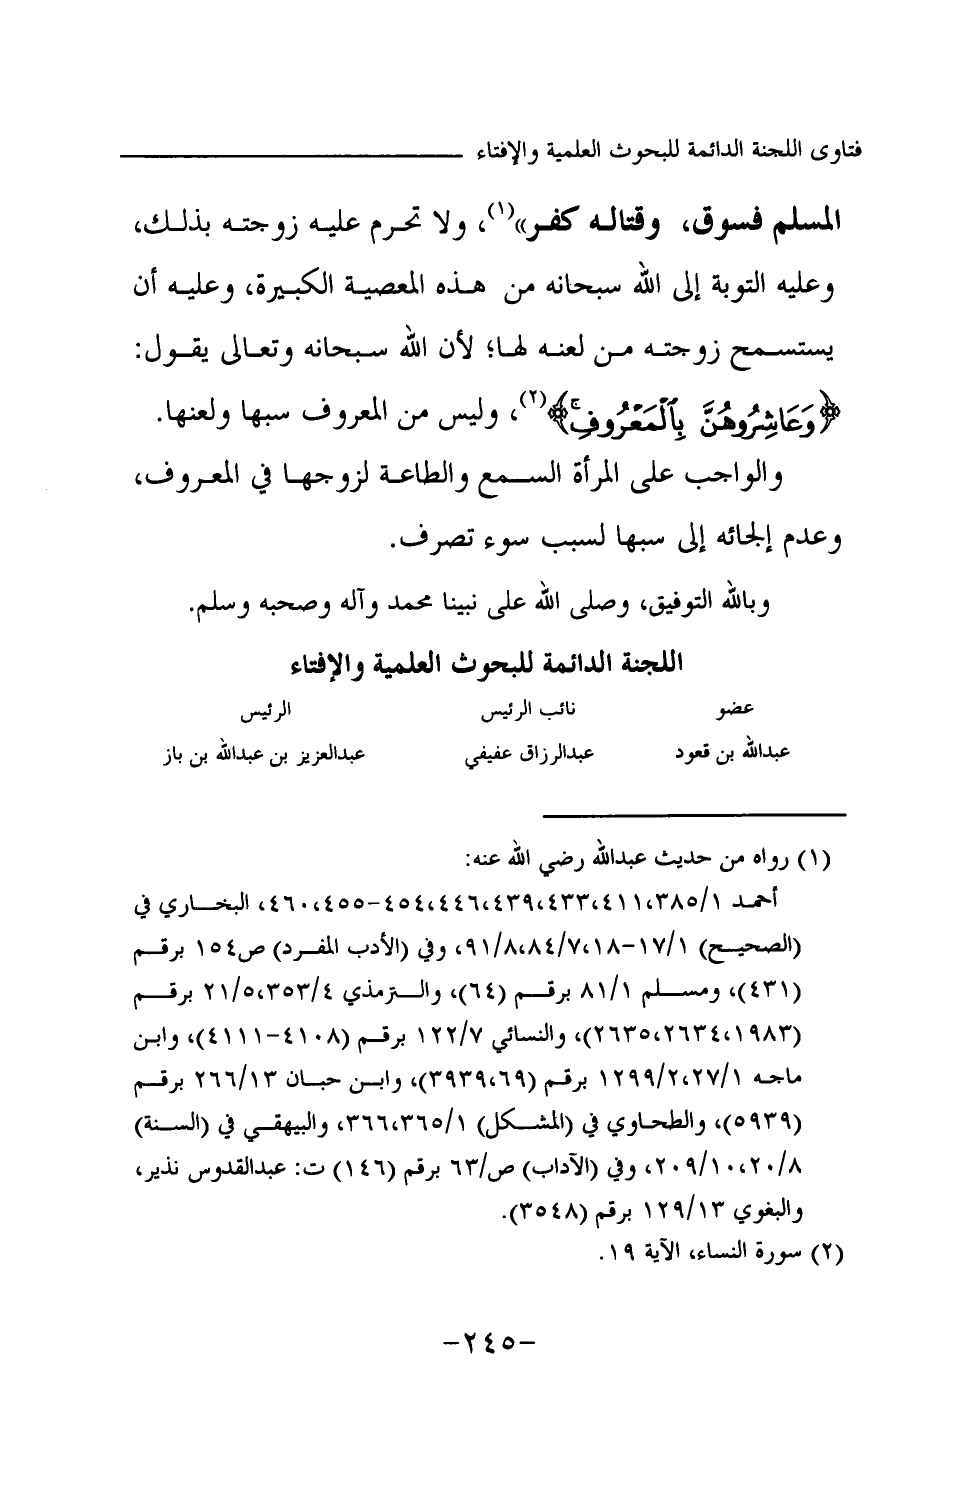 فتاوى اللجنة الدائمة للبحوث العلمية والإفتاء
المسلم فسوق، وقتاله كفر»(١)، ولا تحرم عليه زوجته بذلك،
وعليه التوبة إلى الله سبحانه من هذه المعصية الكبيرة، وعليه أن
يستسمح زوجته من لعنه لها؛ لأن الله سبحانه وتعالى يقول:
﴿وَعَاشِرُوهُنَّ بِٱلْمَعْرُوفِۚ﴾(٢)، وليس من المعروف سبها ولعنها.
والواجب على المرأة السمع والطاعة لزوجها في المعروف،
وعدم إلجائه إلى سبها لسبب سوء تصرف.
وبالله التوفيق، وصلى الله على نبينا محمد وآله وصحبه وسلم.
اللجنة الدائمة للبحوث العلمية والإفتاء
عضو نائب الرئيس الرئيس
عبدالله بن قعود عبدالرزاق عفيفي عبدالعزيز بن عبدالله بن باز
(١) رواه من حديث عبدالله رضي الله عنه:
أحمد ١/٣٨٥،٤١١،٤٣٣،٤٣٩،٤٤٦،٤٥٤-٤٥٥،٤٦٠، البخاري في
(الصحيح) ١/١٧-١٨،٧/٨٤،٨/٩١، وفي (الأدب المفرد) ص١٥٤ برقم
(٤٣١)، ومسلم ١/٨١ برقم (٦٤)، والترمذي ٤/٣٥٣،٥/٢١ برقم
(١٩٨٣،٢٦٣٤،٢٦٣٥)، والنسائي ٧/١٢٢ برقم (٤١٠٨-٤١١١)، وابن
ماجه ١/٢٧،٢/١٢٩٩ برقم (٦٩،٣٩٣٩)، وابن حبان ١٣/٢٦٦ برقم
(٥٩٣٩)، والطحاوي في (المشكل) ١/٣٦٥،٣٦٦، والبيهقي في (السنة)
٨/٢٠،١٠/٢٠٩، وفي (الآداب) ص/٦٣ برقم (١٤٦) ت: عبدالقدوس نذير،
والبغوي ١٣/١٢٩ برقم (٣٥٤٨).
(٢) سورة النساء، الآية ١٩.
-٢٤٥-